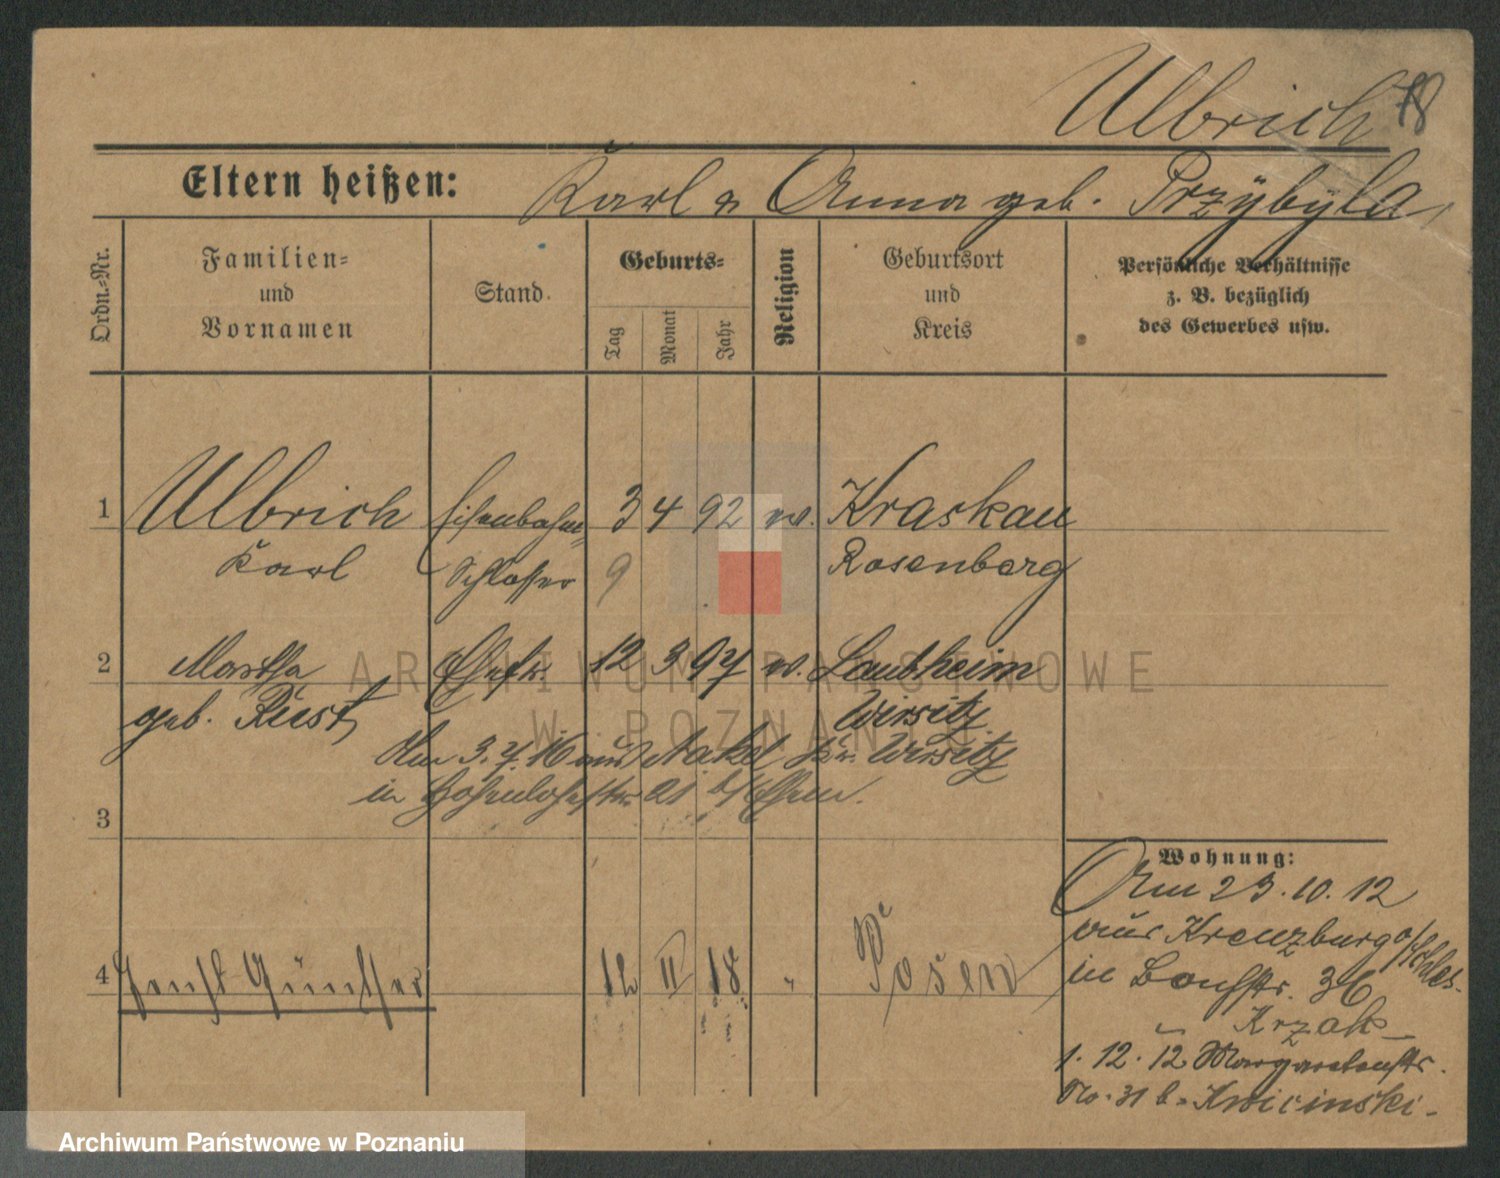 Ulbrich 78
Eltern heißen: Karl u Anna geb. Przybyla,
Ordn.-Nr.
Familien- und Vornamen
Stand.
Geburts-
Tag Monat Jahr
Religion
Geburtsort und Kreis
Persönliche Verhältnisse
z. B. bezüglich
des Gewerbes usw.
1 Ulbrich Eisenbahn- 3 4 92 ev. Kraskau
Karl Schlosser 9 Rosenberg
2 Martha Ehefr. 12 3 97 ev. Laubheim
geb. Rust Wirsitz
Am 3.7.16 aus Nakel Kr. Wirsitz
in Hohenlohestr. 21 b/ Ehem.
3
4 Horst Günther 12 II 18. " Posen
Wohnung:
Am 23.10.12
aus Kreuzburg o/Schles.
in 36
Krzak
1.12.12 Margaretenstr.
No. 31 b. Kwicinski.
ARCHIWUM PAŃSTWOWE
W POZNANIU
Archiwum Państwowe w Poznaniu